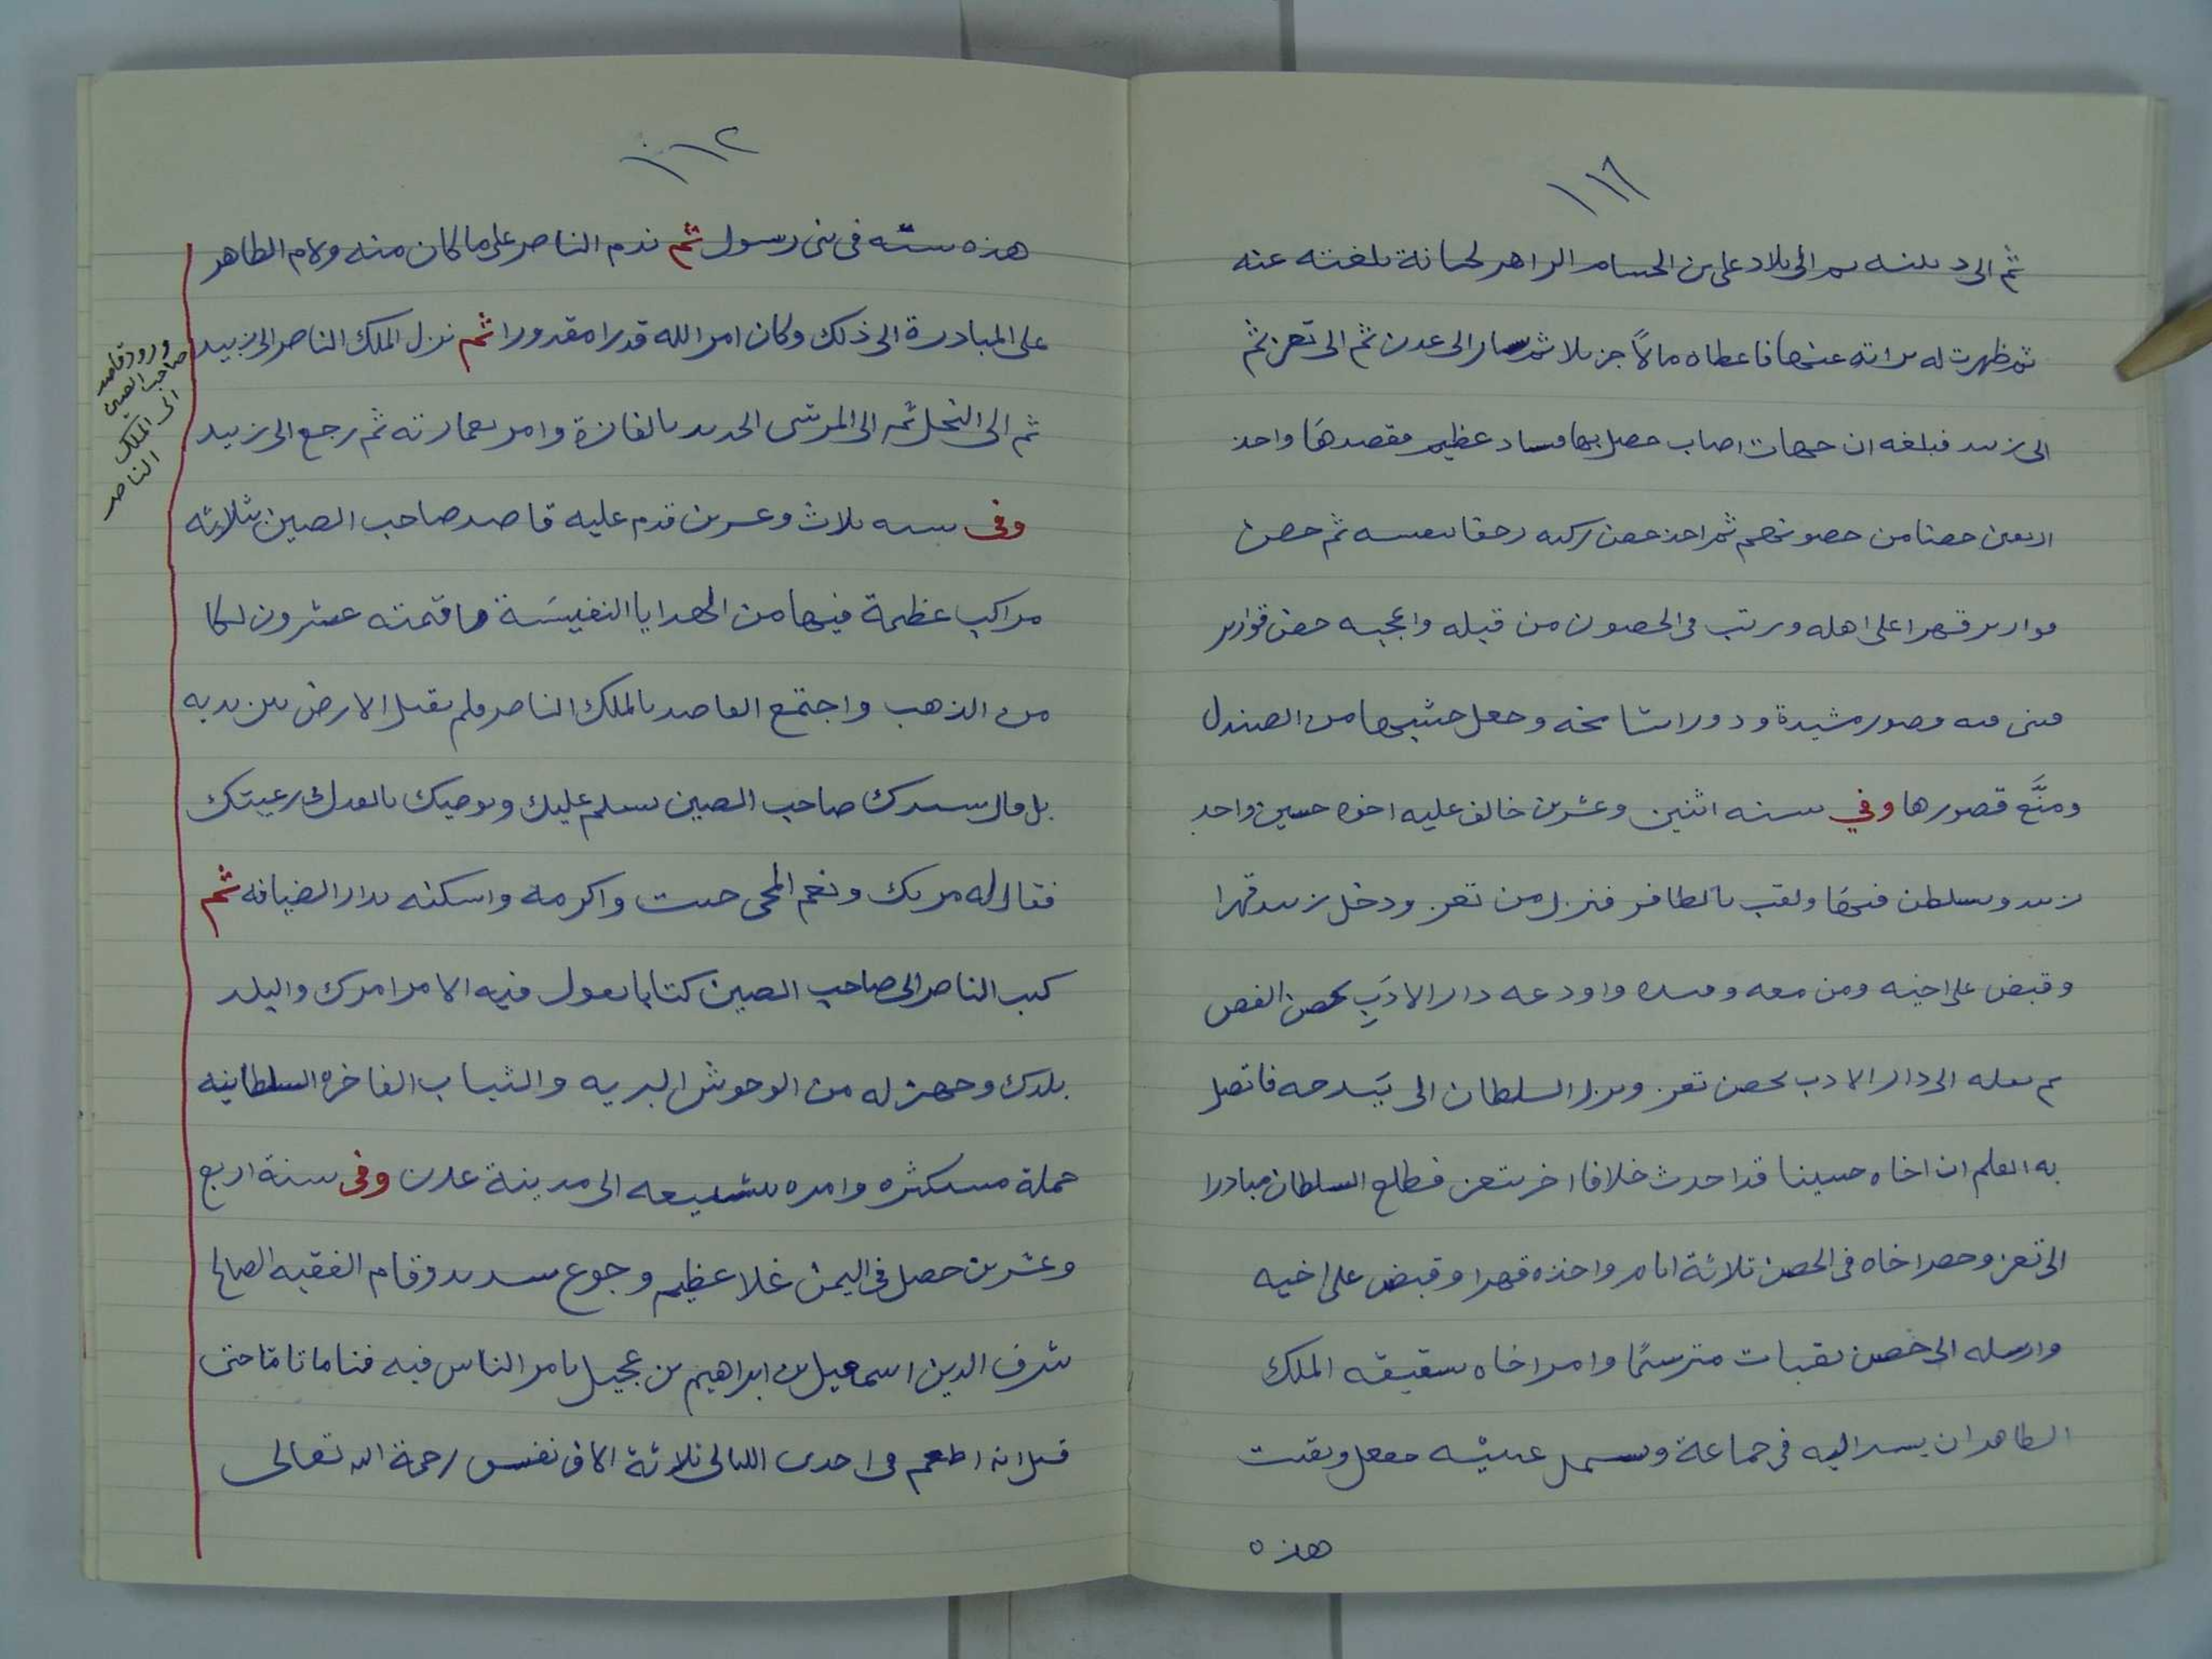 ١١٦
ثم الى د ثم الى بلاد على بن الحسام الزاهر لخيانة بلغته عنه
ثم ظهرت له براته عنها فاعطاه مالًا جزيلا ثم سار الى عدن ثم الى تعز ثم
الى زبيد فبلغه ان جهات اصاب حصل بها فساد عظيم فقصدها واخذ
اربعين حصنا من حصونهم ثم اخذ حصن بنفسه ثم حصن
قوارير قهرا على اهله ورتب فى الحصون من قبله واعجبه حصن قوارير
فبنى فيه قصور مشيدة ودورا شامخه وجعل خشبها من الصندل
ومنَّع قصورها وفي سنه اثنين وعشرين خالف عليه اخوه حسين واخذ
زبيد وتسلطن فيها ولقب بالظافر فنزل من تعز ودخل زبيد قهرا
وقبض على اخيه ومن معه وقيده واودعه دار الادَبِ بحصن الفص
ثم نقله الى دار الادب بحصن تعز ونزل السلطان الى فاتصل
به العلم ان اخاه حسينا قد احدث خلافا اخر بتعز فطلع السلطان مبادرا
الى تعز وحصر اخاه فى الحصن ثلاثة ايام واخذه قهرا وقبض على اخيه
وارسله الى حصن مترسمًا وامر اخاه شقيقه الملك
الظاهر ان يسير اليه فى جماعة ويسمل عينيه ففعل وبقيت
هذه
١١٢
هذه سنّه فى بنى رسول ثم ندم الناصر على ما كان منه ولام الظاهر
على المبادرة الى ذلك وكان امر الله قدرا مقدورا ثم نزل الملك الناصر الى زبيد
ثم الى النخل ثم الى المرسى الجديد بالفازة وامر بعمارته ثم رجع الى زبيد
وفى سنه ثلاث وعشرين قدم عليه قاصد صاحب الصين بثلاثه
مراكب عظيمة فيها من الهدايا النفيسَة ما قيمته عشرون لكا
من الذهب واجتمع القاصد بالملك الناصر فلم يقبل الارض بين يديه
بل قال سيدك صاحب الصين يسلم عليك ويوصيك بالعدل فى رعيتك
فقال له مرحبا بك ونعم المجى جيت واكرمه واسكنه بدار الضيافه ثم
كتب الناصر الى صاحب الصين كتابا يقول فيه الامر امرك والبلد
بلدك وجهز له من الوحوش البريه والثياب الفاخره السلطانيه
جملة مستكثره وامره بتشييعه الى مدينة عدن وفى سنة اربع
وعشرين حصل فى اليمن غلا عظيم وجوع شديد وقام الفقيه الصالح
شرف الدين اسمعيل بن ابراهيم بن عجيل بامر الناس فيه قياما تامّا حتى
قيل انه اطعم فى احدى الليالى ثلاثة الاف نفس رحمة الله تعالى
ورود قاصد
صاحب الصين
الى الملك
الناصر